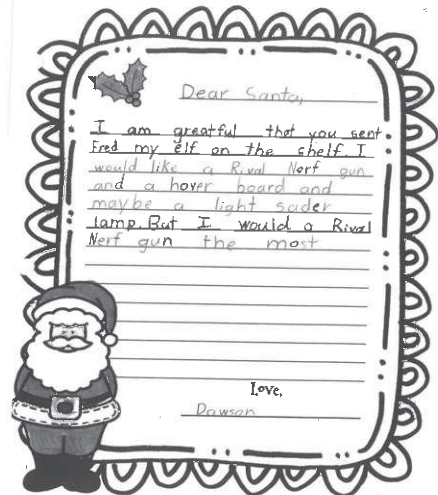 Dear Santa,
I am greatful that you sent
Fred my elf on the shelf. I
would like a Rival Nerf gun
and a hover board and
maybe a light sader
lamp. But I would a Rival
Nerf gun the most
Love,
Dawson